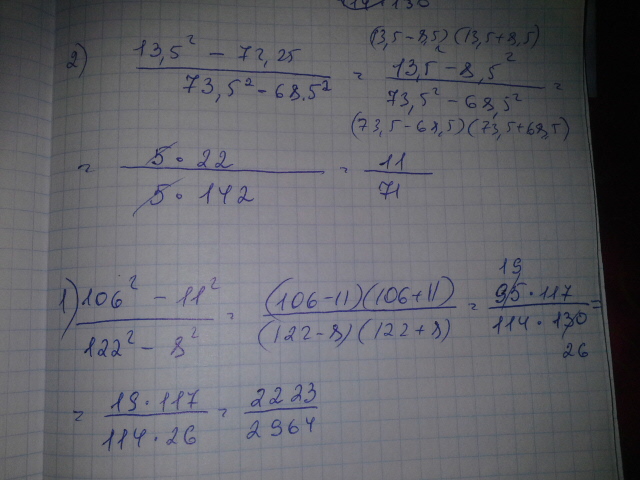 (13,5-8,5) (13,5+8,5)
2) 13,5² - 72,25 / 73,5² - 68.5² = 13,5² - 8,5² / 73,5² - 68,5² =
(73,5-68,5) (73,5+68,5)
= 5 · 22 / 5 · 142 = 11 / 71
19
1) 106² - 11² / 122² - 8² = (106-11)(106+11) / (122-8)(122+8) = 95·117 / 114·130 =
26
= 19·117 / 114·26 = 2223 / 2964